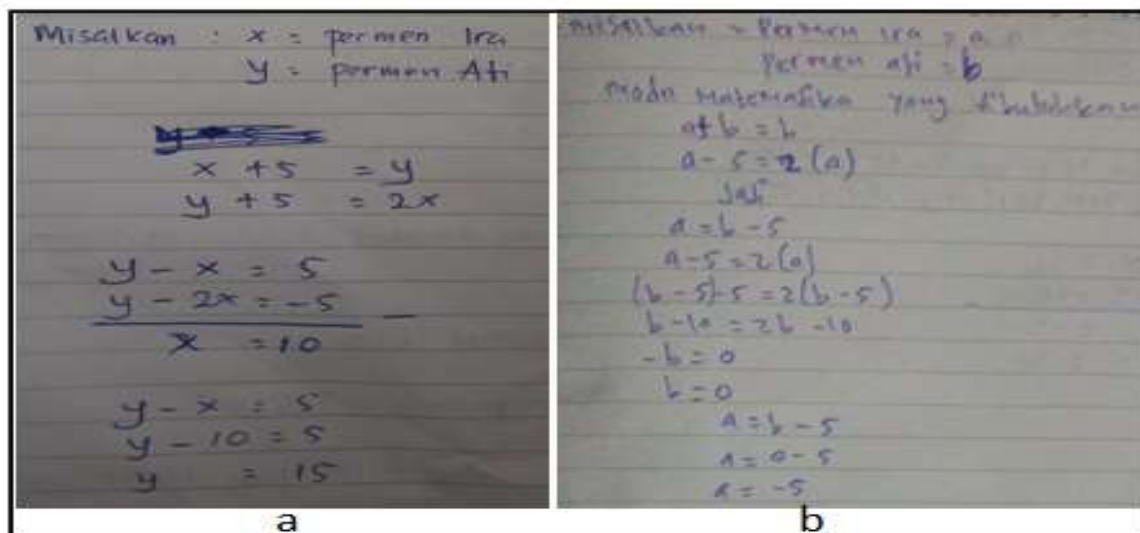 Misalkan : x = permen Ira
y = permen Afi
x + 5 = y
y + 5 = 2x
y - x = 5
y - 2x = -5
x = 10
y - x = 5
y - 10 = 5
y = 15
a
Misalkan = Permen Ira = a
Permen afi = b
Matematika yang dibutuhkan
a + b = b
a - 5 = 2 (a)
Jadi
a = b - 5
a - 5 = 2(a)
(b - 5) - 5 = 2(b - 5)
b - 10 = 2b - 10
-b = 0
b = 0
a = b - 5
a = 0 - 5
a = -5
b